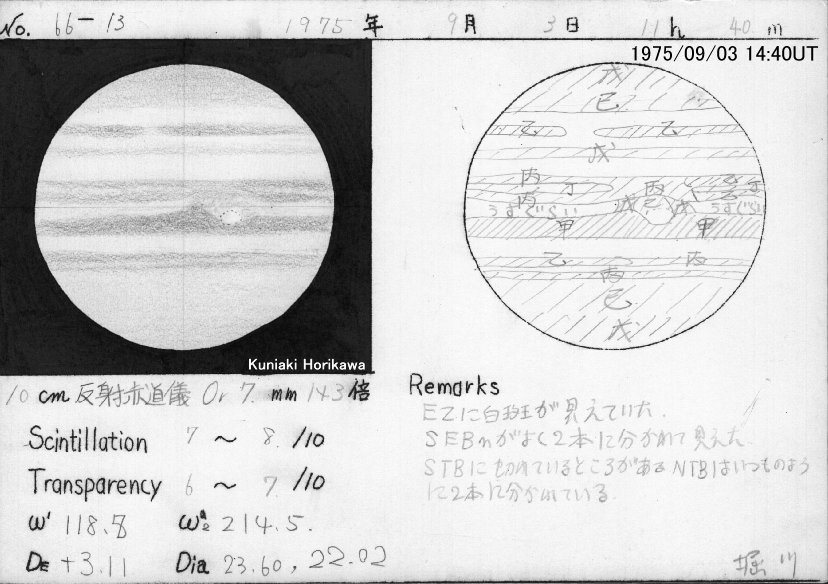 No. 66-13 1975年 9月 3日 11h 40m
1975/09/03 14:40UT
戊
巳
乙 乙
戊
丙 乙
丁 丙 乙 丁
丙 戊 戊
うすぐらい うすぐらい
甲 甲
乙 丙
丙
巳
戊
Kuniaki Horikawa
10cm 反射赤道儀 Or 7mm 143倍
Scintillation 7 ~ 8 /10
Transparency 6 ~ 7 /10
ω¹ 118.8 ω₂ 214.5.
DE +3.11 Dia 23.60, 22.02
Remarks
EZに白斑が見えていた.
SEBnがよく2本に分かれて見えた.
STBに切れているところがある NTBはいつものよう
に2本に分かれている.
堀川